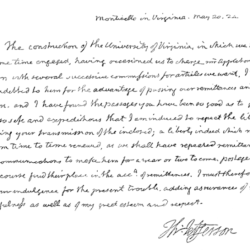 Monticello in Virginia. May 20. 22
The construction of the University of Virginia, in which we
some time engaged, having occasioned us to charge, our
with several successive commissions for articles we want, I
indebted to him for the advantage of passing our remittances
and I have found the passages you have been so good as to
so safe and expeditious that I am induced to repeat the
your transmission of the inclosed, a
from time to time renewed, as we shall have repeated
communications to make him for a year or two to come, postage
course find their place in the acct. of remittances. I must therefore
indulgence for the present trouble, adding assurances of
as well as of my great esteem and respect.
Th: Jefferson